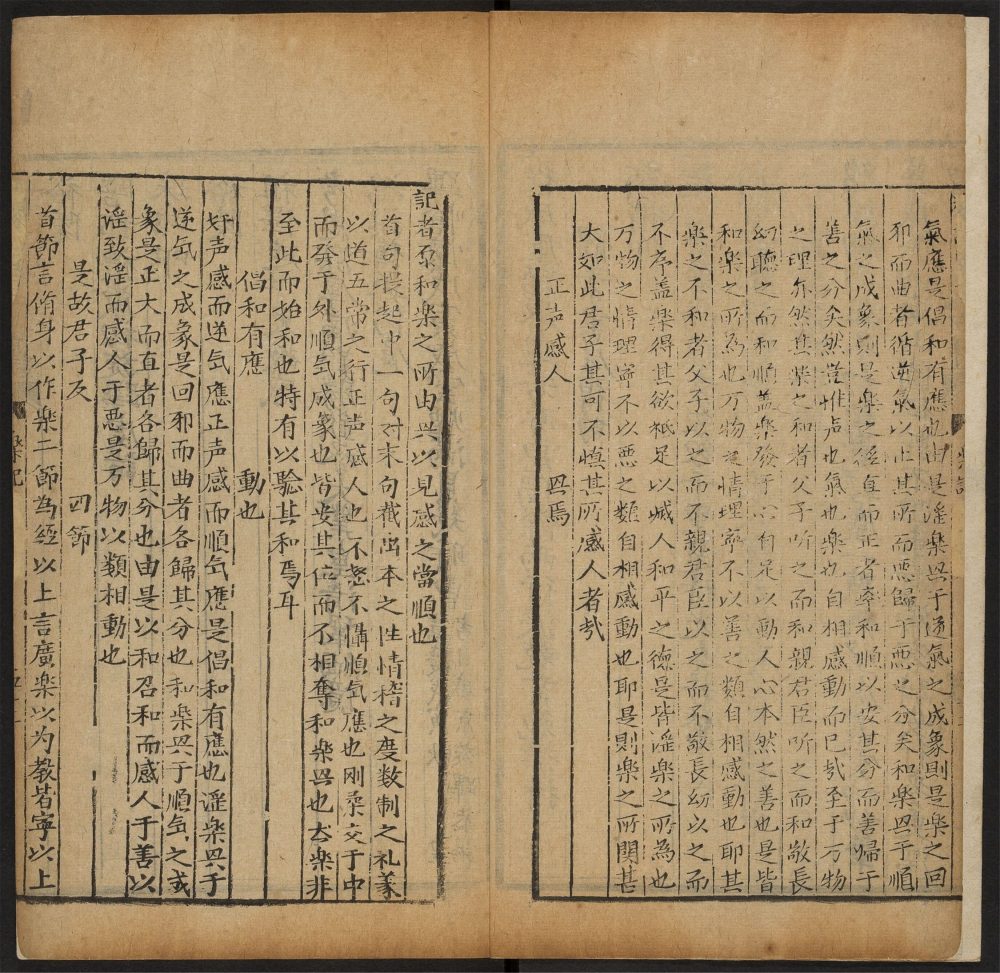 氣應是倡和有應也由是滛樂㒷于逆氣之成象則是樂之回
邪而曲者循逆氣以止其所而惡歸于惡之分矣和樂㒷于順
氣之成象則是樂之徑直而正者率和順以安其分而善帰于
善之分矣然豈惟声也氣也樂也自相感動而已㢤至于万物
之理亦然其樂之和者父子听之而和親君臣听之而和敬長
幼聽之而和順盖樂發于心有足以動人心本然之善也是皆
和樂之所為也万物之情理寧不以善之類自相感動也耶其
樂之不和者父子以之而不親君臣以之而不敬長幼以之而
不序盖樂得其欲秪足以喊人和平之德是皆滛樂之所為也
万物之情理寧不以惡之類自相感動也耶是則樂之所関甚
大如此君子其可不慎其所感人者㢤
正声感人 㒷焉
記者原和樂之所由㒷以見感之當順也
首句提起中一句对末句截出本之性情稽之度数制之礼义
以道五常之行正声感人也不慗不懾順気應也刚柔交于中
而發于外順気成象也皆安其位而不相奪和樂㒷也古樂非
至此而始和也特有以騐其和焉耳
倡和有應 動也
奸声感而逆気應正声感而順気應是倡和有應也滛樂㒷于
逆気之成象是回邪而曲者各歸其分也和樂㒷于順気之成
象是正大而直者各歸其分也由是以和召和而感人于善以
滛致滛而感人于惡是万物以類相動也
是故君子反 四節
首節言脩身以作樂二節為經以上言廣樂以为教若寧以上
樂記